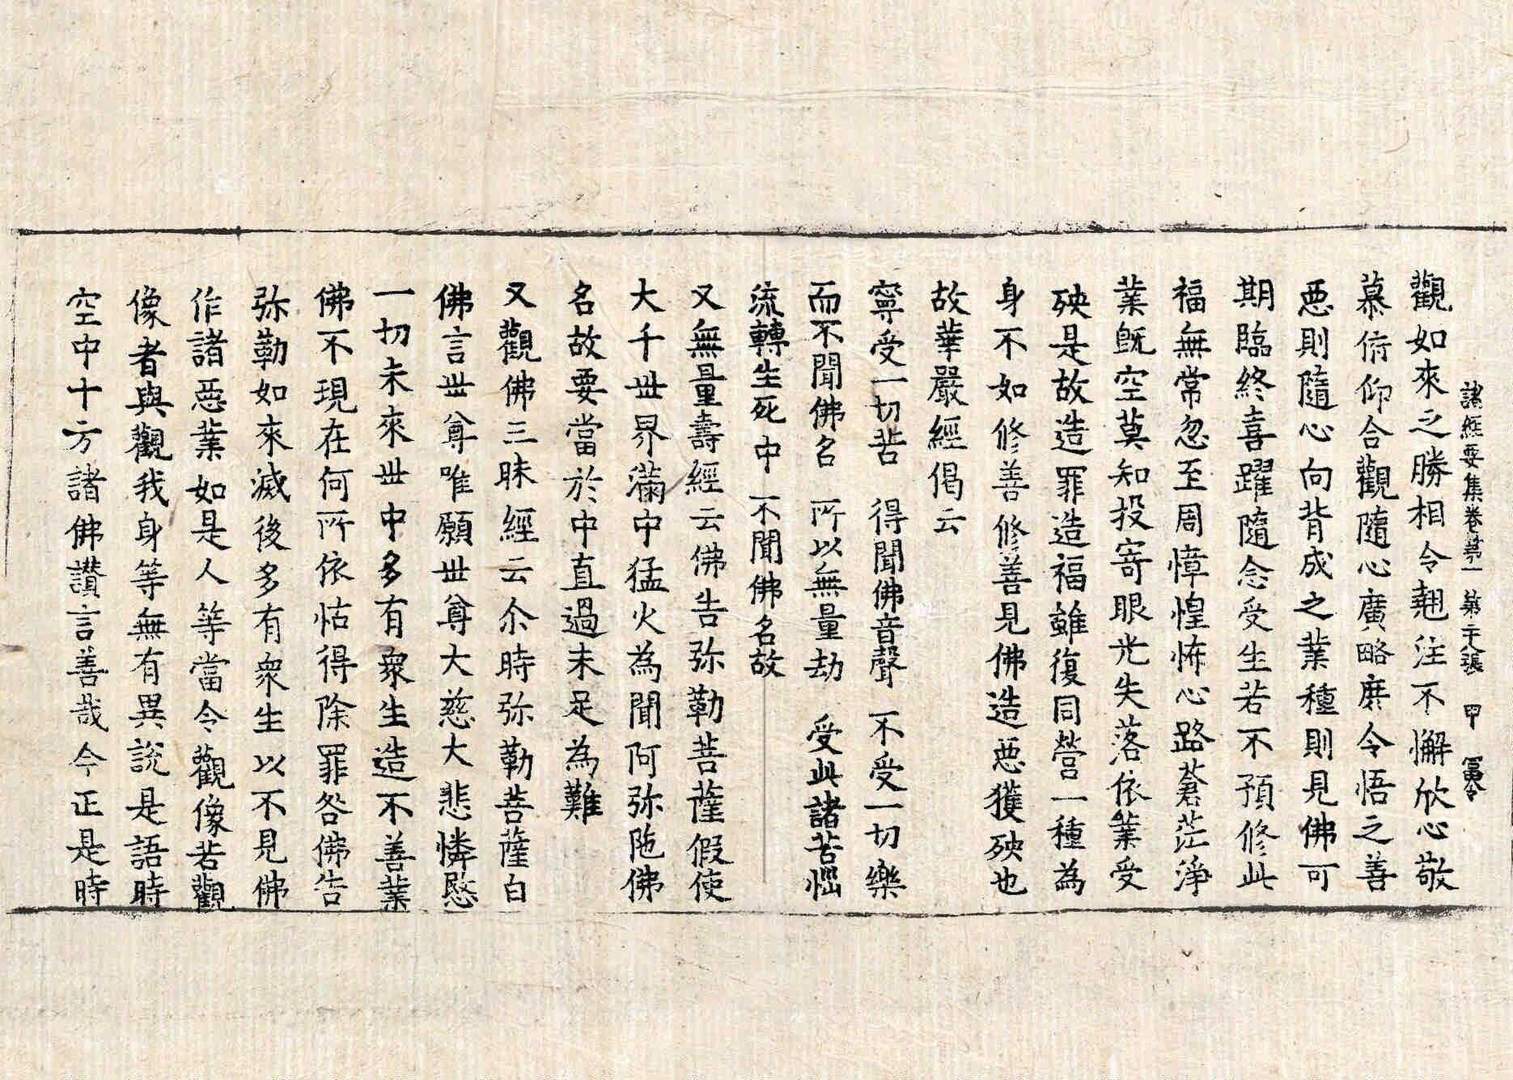 諸經要集卷第一 第二十八張 甲
觀如來之勝相令翹注不懈欣心敬
慕俯仰合觀隨心廣略庶令悟之善
惡則隨心向背成之業種則見佛可
期臨終喜躍隨念受生若不預修此
福無常忽至周慞惶怖心路蒼茫淨
業既空莫知投寄眼光失落依業受
殃是故造罪造福雖復同營一種為
身不如修善修善見佛造惡獲殃也
故華嚴經偈云
寧受一切苦 得聞佛音聲 不受一切樂
而不聞佛名 所以無量劫 受此諸苦惱
流轉生死中 不聞佛名故
又無量壽經云佛告弥勒菩薩假使
大千世界滿中猛火為聞阿弥陁佛
名故要當於中直過未足為難
又觀佛三昧經云尒時弥勒菩薩白
佛言世尊唯願世尊大慈大悲憐愍
一切未來世中多有衆生造不善業
佛不現在何所依怙得除罪咎佛告
弥勒如來滅後多有衆生以不見佛
作諸惡業如是人等當令觀像若觀
像者與觀我身等無有異說是語時
空中十方諸佛讃言善哉今正是時